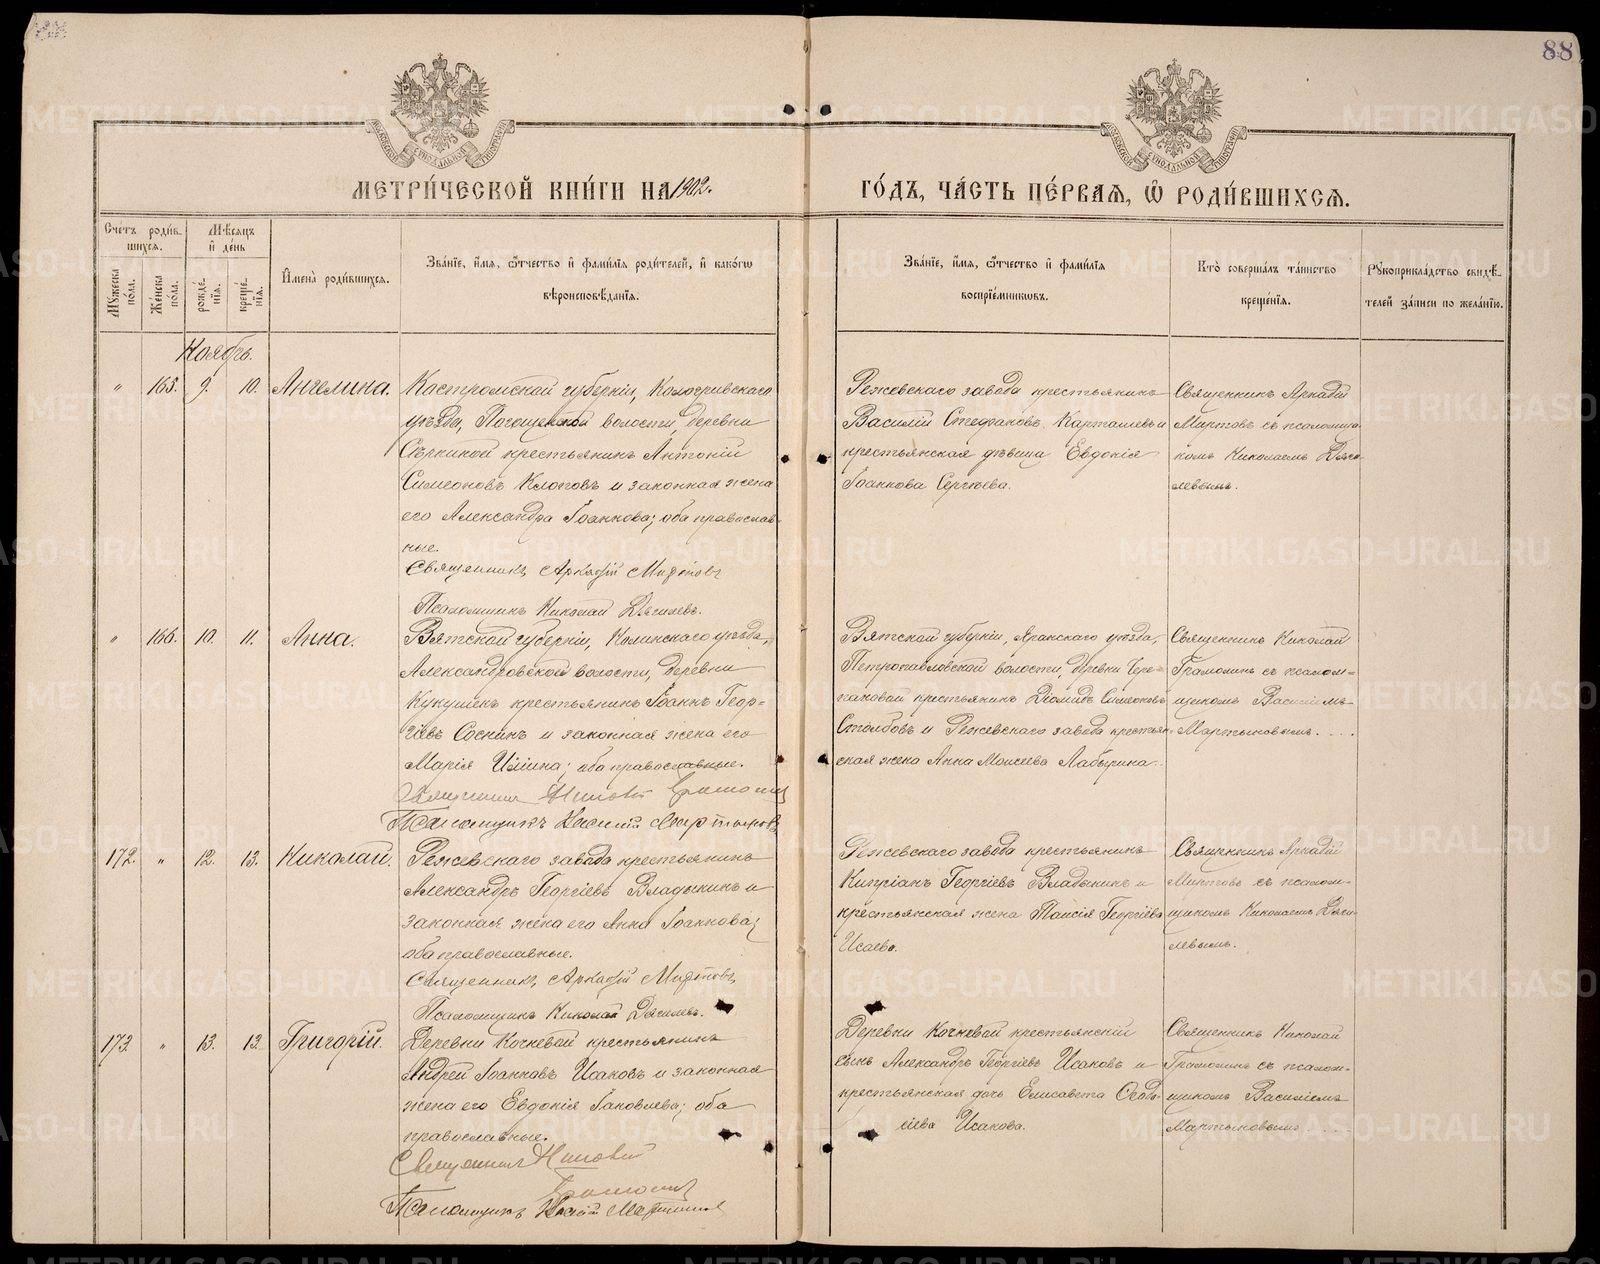 88
МОСКОВСКОЙ СѴНОДАЛЬНОЙ ТИПОГРАФІИ
МОСКОВСКОЙ СѴНОДАЛЬНОЙ ТИПОГРАФІИ
МЕТРИ́ЧЕСКОЙ КНИ́ГИ НА 1902.
ГО́ДЪ, ЧА́СТЬ ПЕ́РВАѦ, Ѿ РОДИ́ВШИХСѦ.
Сче́тъ роди́в-
шихсѧ.
Мꙋ́жеска по́ла.
Же́нска по́ла.
Мѣ́сѧцъ
и҆ де́нь
рожде́-
нїѧ.
креще́-
нїѧ.
И҆мена̀ роди́вшихсѧ.
Зва́нїе, и҆́мѧ, ѻ҆́тчество и҆ фами́лїѧ роди́телей, и҆ како́гѡ
вѣроисповѣ́данїѧ.
Зва́нїе, и҆́мѧ, ѻ҆́тчество и҆ фами́лїѧ
воспрїе́мникѡвъ.
Кто̀ соверша́лъ та́инство
креще́нїѧ.
Рꙋкоприкла́дство свидѣ́-
телей за́писи по жела́нїю.
Ноябрь.
" 165. 9. 10. Ангелина.
Костромской губерніи, Кологривскаго
уѣзда, волости, деревни
крестьянинъ Антоній
Симеоновъ Клоповъ и законная жена
его Александра Іоаннова; оба православ-
ные.
Священникъ Аркадій Миртовъ
Псаломщикъ Николай Дягилевъ.
Режевскаго завода крестьянинъ
Василій Стефановъ и
крестьянская дѣвица Евдокія
Іоаннова Сергѣева.
Священникъ Аркадій
Миртовъ съ псаломщи-
комъ Николаемъ Дяги-
левымъ.
" 166. 10. 11. Анна.
Вятской губерніи, уѣзда,
Александровской волости, деревни
крестьянинъ Іоаннъ Геор-
гіевъ Соснинъ и законная жена его
Марія Иліина; оба православные.
Священникъ Николай Грамолинъ
Псаломщикъ Василій Мартыновъ
Вятской губерніи, Яранскаго уѣзда,
Петропавловской волости, деревни Чере-
пановой крестьянинъ Діомидъ Симеоновъ
Столбовъ и Режевскаго завода крестьян-
ская жена Анна Моисеева Лабырина.
Священникъ Николай
Грамолинъ съ псалом-
щикомъ Василіемъ
Мартыновымъ.
172. " 12. 13. Николай.
Режевскаго завода крестьянинъ
Александръ Георгіевъ Владыкинъ и
законная жена его Анна Іоаннова;
оба православные.
Священникъ Аркадій Миртовъ
Псаломщикъ Николай Дягилевъ.
Режевскаго завода крестьянинъ
Кипріанъ Георгіевъ Владыкинъ и
крестьянская жена Таисія Георгіева
Исаева.
Священникъ Аркадій
Миртовъ съ псалом-
щикомъ Николаемъ Дяги-
левымъ.
173. " 13. 13. Григорій.
Деревни Кочневой крестьянинъ
Андрей Іоанновъ Исаковъ и законная
жена его Евдокія Іаковлева; оба
православные.
Священникъ Николай
Грамолинъ
Псаломщикъ Василій Мартыновъ
Деревни Кочневой крестьянскій
сынъ Александръ Георгіевъ Исаковъ и
крестьянская дочь Елисавета
Исакова.
Священникъ Николай
Грамолинъ съ псалом-
щикомъ Василіемъ
Мартыновымъ
METRIKI.GASO-URAL.RU